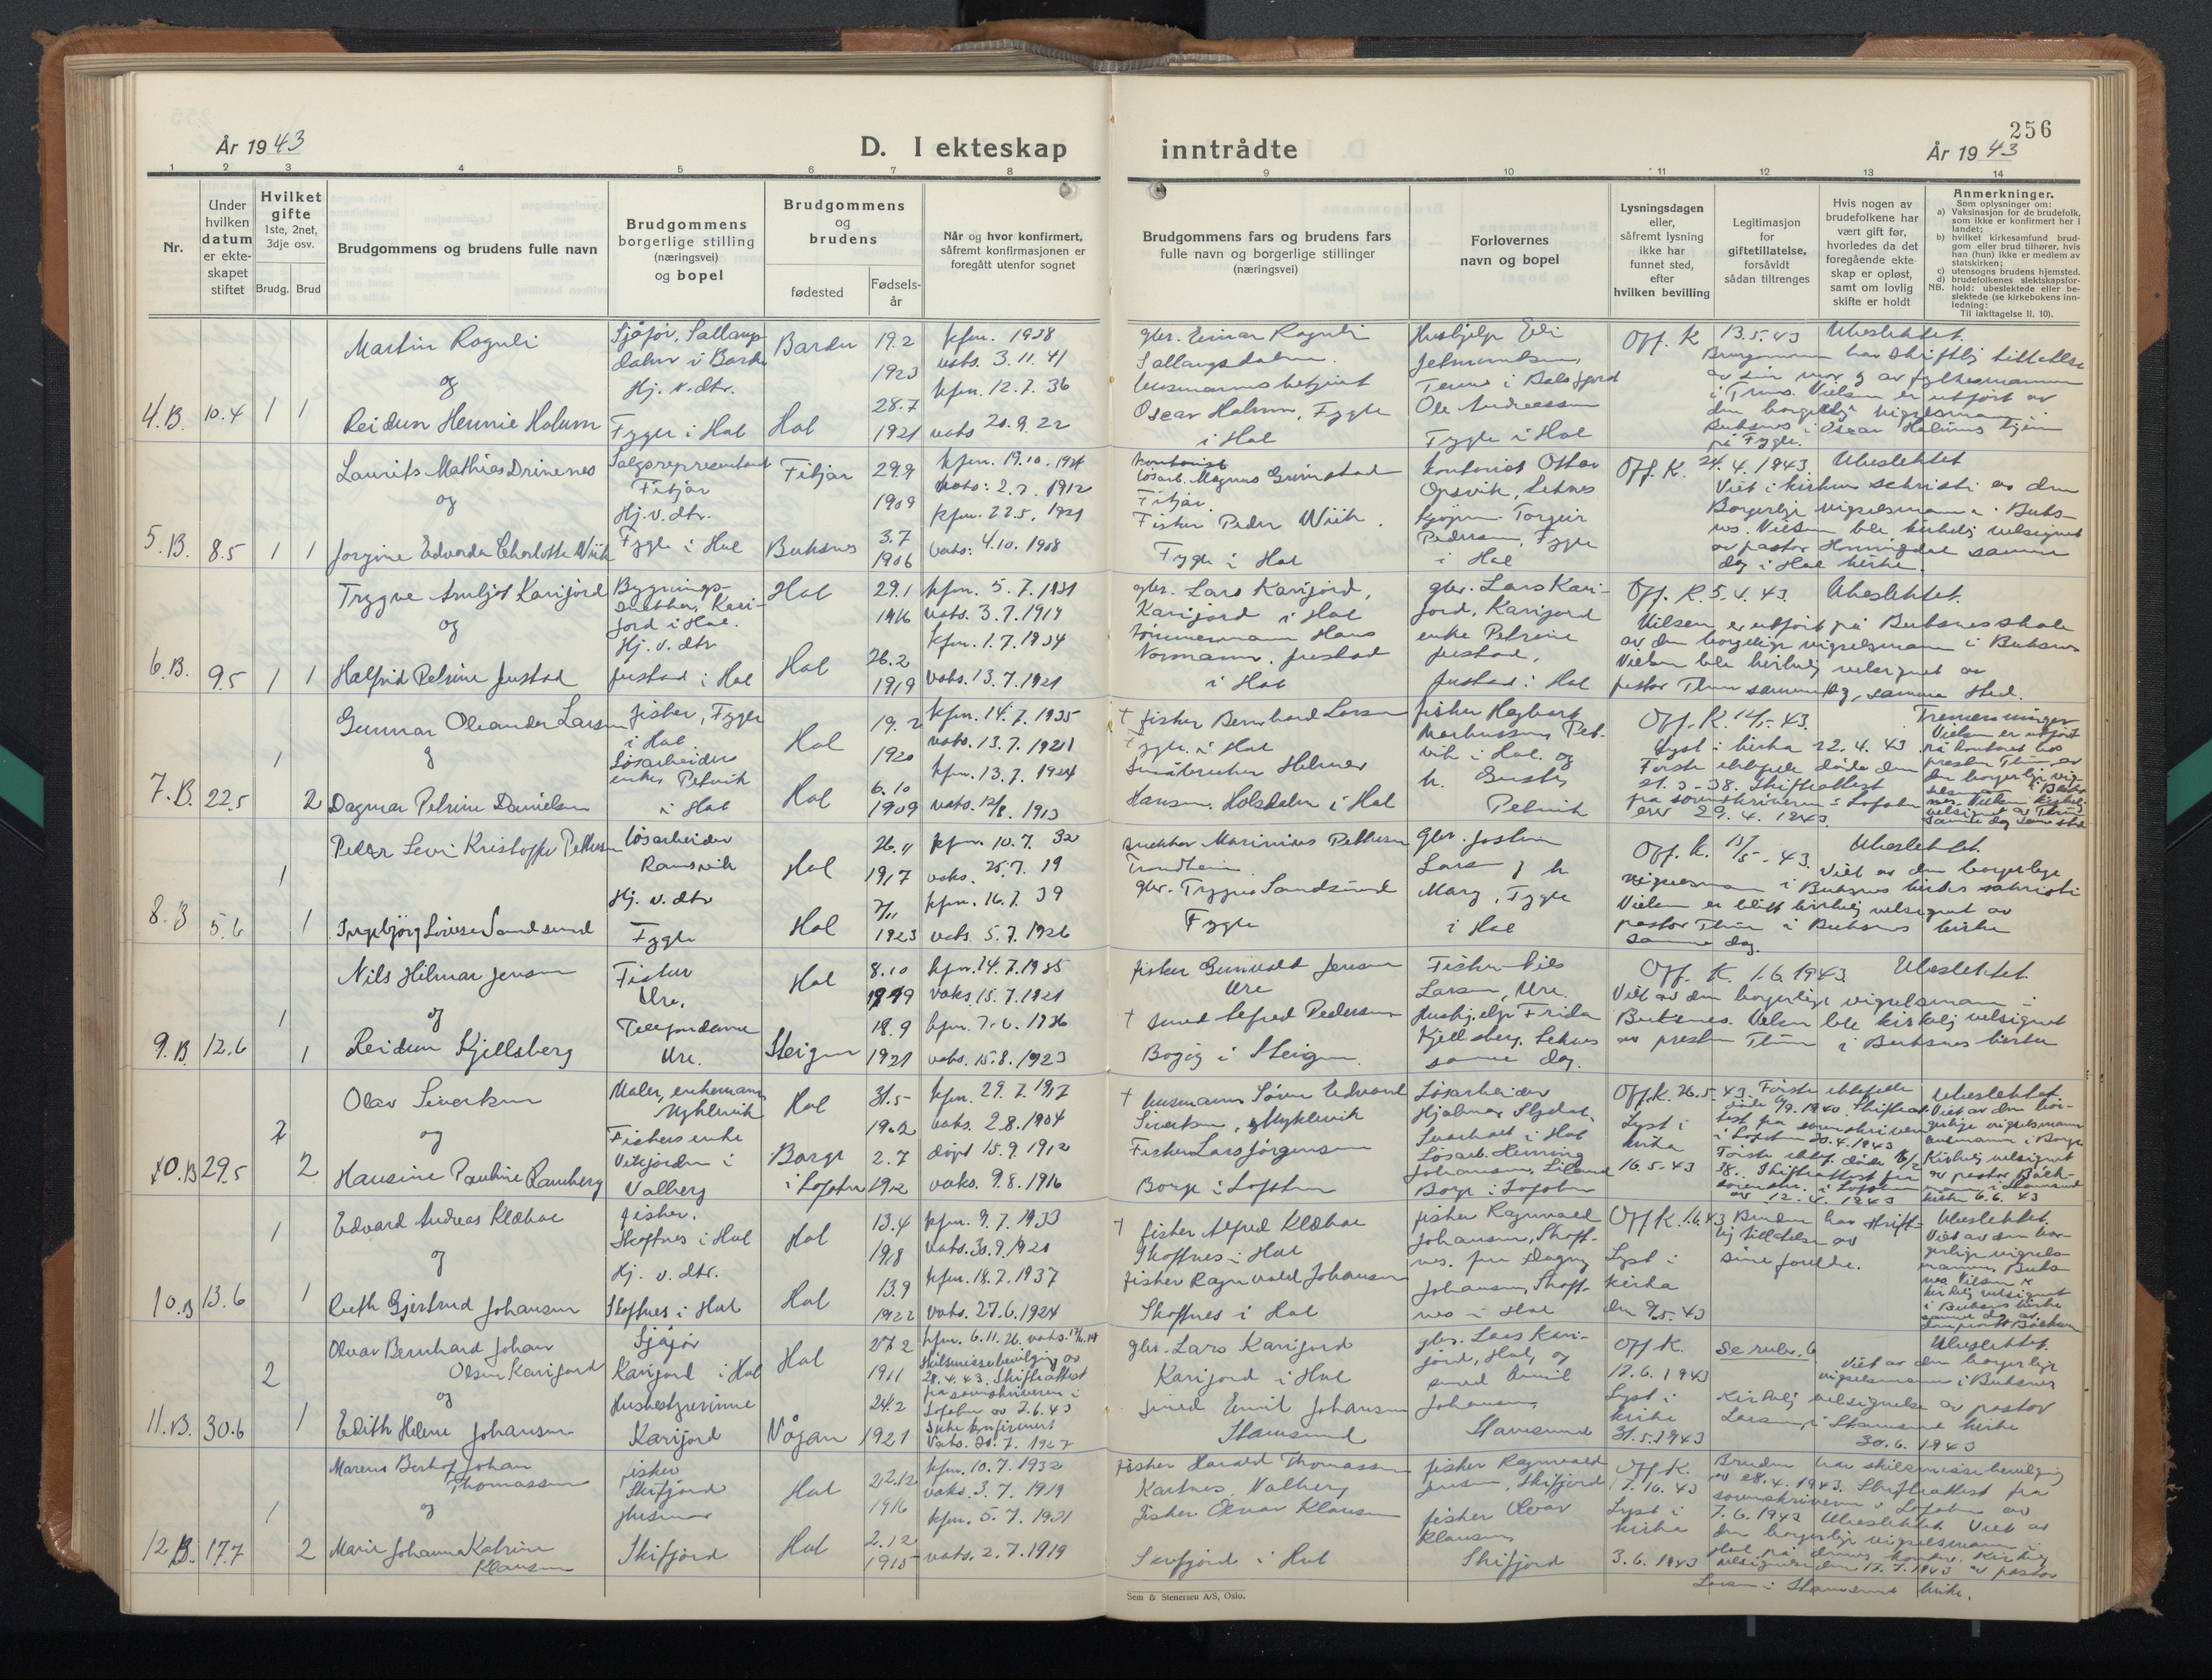 256
År 1943
D. I ekteskap inntrådte
År 1943
1 2 3 4 5 6 7 8 9 10 11 12 13 14
Nr.
Under
hvilken
datum
er ekte-
skapet
stiftet
Hvilket
gifte
1ste, 2net,
3dje osv.
Brudg. Brud
Brudgommens og brudens fulle navn
Brudgommens
borgerlige stilling
(næringsvei)
og bopel
Brudgommens
og
brudens
fødested
Fødsels-
år
Når og hvor konfirmert,
såfremt konfirmasjonen er
foregått utenfor sognet
Brudgommens fars og brudens fars
fulle navn og borgerlige stillinger
(næringsvei)
Forlovernes
navn og bopel
Lysningsdagen
eller,
såfremt lysning
ikke har
funnet sted,
efter
hvilken bevilling
Legitimasjon
for
giftetillatelse,
forsåvidt
sådan tiltrenges
Hvis nogen av
brudefolkene har
vært gift før,
hvorledes da det
foregående ekte-
skap er opløst,
samt om lovlig
skifte er holdt
Anmerkninger.
Som oplysninger om:
a) Vaksinasjon for de brudefolk,
som ikke er konfirmert her i
landet;
b) hvilket kirkesamfund brud-
gom eller brud tilhører, hvis
han (hun) ikke er medlem av
statskirken;
c) utensogns brudens hjemsted.
d) brudefolkenes slektskapsfor-
hold: ubeslektede eller be-
slektede (se kirkebokens inn-
ledning:
NB.
Til iakttagelse ll. 10).
4.B. 10.4 1 1
Martin Rognli
og
Reidun Hennie Holum
Sjåfør,
Hj. v. dtr.
Fygle i Hol
Bardu
Hol
19.2
1923
28.7
1921
kfm. 1938
vaks. 3.11.41
kfm. 12.7.36
vaks 20.9.22
gbr. Einar Rognli
Oscar Holum, Fygle
i Hol
Ole Andreassen
Fygle i Hol
Off. K 13.5.43 Ubeslektet.
på Fygle.
5.B. 8.5 1 1
Laurits Mathias Drinenes
og
Jorgine Edvarda Charlotte Wiik
Salgsrepresentant
Fitjar
Hj. v. dtr.
Fygle i Hol
Fitjar
Buksnes
29.9
1909
3.7
1906
kfm. 19.10.1924
vaks: 2.7.1912
kfm. 22.5.1921
vaks: 4.10.1908
Løsarb. Magnus Grimstad
Fitjar.
Fisker Peder Wiik.
Fygle i Hol
Kontorist Ottar
Opsvik, Leknes
Torgeir
Pedersen, Fygle
i Hol
Off. K. 24.4.1943. Ubeslektet
Viet i kirkens sakristi av den
Borgerlige vigselsmann i Buks-
nes. Vielsen ble kirkelig velsignet
av pastor samme
dag i Hol kirke.
6.B. 9.5 1 1
Trygve Arnljot Karijord
og
Halfrid Petrine Justad
Bygnings-
snekker, Kari-
jord i Hol.
Hj. v. dtr
Justad i Hol
Hol
Hol
29.1
1916
26.2
1919
kfm. 5.7.1931
vaks. 3.7.1919
kfm. 1.7.1934
vaks. 13.7.1921
gbr. Lars Karijord,
Karijord i Hol
Tømmermann Hans
Normann. Justad
i Hol
gbr. Lars Kari-
jord, Karijord
enke Petrine
Justad,
Justad i Hol
Off. K. 5.4.43. Ubeslektet.
Vielsen er utført på Buksnes skole
av den borgerlige vigselsmann i Buksnes
Vielsen ble kirkelig velsignet av
pastor Thun samme dag, samme sted.
7.B. 22.5 1 2
Gunnar Oleander Larsen
og
Dagmar Petrine Danielsen
fisker, Fygle
i Hol
Løsarbeiders
enke, Petvik
i Hol
Hol
Hol
19.2
1920
6.10
1909
kfm. 14.7.1935
vaks. 13.7.1921
kfm. 13.7.1924
vaks. 12/8.1913
† fisker Bernhard Larsen
Fygle i Hol
Småbruker Hilmer
Hansen. Holsdalen i Hol
fisker Hagbart
Markussen, Pet-
vik i Hol. og
Petvik
Off. K. 43.
Lyst i kirka 22.4.43
Første ektefelle døde den
21.3-38. Skifteattest
fra sorenskriveren i Lofoten
av 29.4.1943.
Tremenninger
Vielsen er utført
på kontoret hos
presten Thun, av
den borgerlige vig-
selsmann i Buks-
nes. Vielsen kirkelig
velsignet av Thun
samme dag samme sted
8.B 5.6 1 1
Peder Levi Kristoffer Pettersen
Ingebjørg Lovise Sandsund
Løsarbeider
Ramsvik
Hj. v. dtr
Fygle
Hol
Hol
26.11
1917
7/11
1923
kfm. 10.7.32
vaks. 25.7.19
kfm. 16.7.39
vaks. 5.7.1926
snekker Marinius Pettersen
Trondheim.
gbr. Trygve Sandsund
Fygle
gbr. Jostein
Larsen og h
Mary, Fygle
i Hol
Off. K. 43. Ubeslektet.
Viet av den borgerlige
vigselsmann i Buksnes kirkes sakristi
Vielsen er blitt kirkelig velsignet av
pastor Thun i Buksnes kirke
samme dag.
9.B 12.6 1 1
Nils Hilmar Jensen
og
Reidun Kjellsberg
Fisker
Ure.
Telefondame
Ure.
Hol
Steigen
8.10
1919
18.9
1921
kfm. 14.7.1935
vaks. 15.7.1921
kfm. 7.6.1936
vaks. 15.8.1923
fisker Gunvald Jensen
Ure
† smed Alfred Pedersen
Bogøy i Steigen.
Fisker Nils
Larsen, Ure.
Hushj.elp Frida
Kjellsberg, Leknes
samme dag.
Off. K. 1.6.1943. Ubeslektet.
Viet av den borgerlige vigselsmann i
Buksnes. Vielsen ble kirkelig velsignet
av presten Thun i Buksnes kirke
10.B 29.5 2 2
Olav Sivertsen
og
Hansine Pauline Ramberg
Maler, enkemann
Myklevik
Fiskers enke
Vikjorden i
Valberg
Hol
Borge
i Lofoten
31.5
1902
2.7
1912
kfm. 29.7.1917
vaks. 2.8.1904
døpt 15.9.1912
vaks. 9.8.1916
† husmann Søren Edvard
Sivertsen, Myklevik
Fisker Lars Jørgensen
Borge i Lofoten
Løsarbeider
Hjalmar
i Hol
Løsarb. Henning
Johansen, Liland
Borge i Lofoten
Off. K. 26.5.43.
Lyst i
kirka
16.5.43
Første ektefelle
i Lofoten 20.4.1943
av 12.4.1943
Ubeslektet.
Viet av den bor-
gerlige vigselsmann
i Borge
Kirkelig velsignet
kirke 6.6.43
10.B 13.6 1 1
Edvard Andreas Klæboe
og
Ruth Gjertrud Johansen
fisker.
Skoftnes i Hol
Hj. v. dtr.
Skoftnes i Hol
Hol
Hol
13.4
1918
13.9
1922
kfm. 9.7.1933
vaks. 30.9.1921
kfm. 18.7.1937
vaks. 27.6.1924
† fisker Alfred Klæboe
Skoftnes i Hol
fisker Ragnvald Johansen
Skoftnes i Hol
fisker Ragnvald
Johansen, Skoft-
nes. fru Dagny
Johansen, Skoft-
nes i Hol
Off K. 1.6.43
Lyst i
kirka
den 9.5.43
Bruden har skrift-
lig tillatelse av
sine foreldre.
Ubeslektet.
Viet av den bor-
gerlige vigsels-
mann, Buks-
nes. Vielsen er
kirkelig velsignet
i Buksnes kirke
samme dag av
11.B. 30.6 2 1
Olvar Bernhard Johan
Olsen Karijord
og
Edith Helene Johansen
Sjåfør
Karijord i Hol
Husbestyrerinne
Karijord
Hol
Vågan
27.2
1911
24.2
1921
kfm. 6.11.26.
Skilsmissebevilging av
28.4.43. Skifteattest
fra sorenskriveren i
Lofoten av 7.6.43
Ikke konfirmert
Vaks. 20.7.1927
gbr. Lars Karijord
Karijord i Hol
smed Emil Johansen
Stamsund
gbr. Lars Kari-
jord, Hol, og
smed Emil
Johansen,
Stamsund
Off K.
17.6.1943
Lyst i
kirke
31.5.1943
Se rubr. 6
Ubeslektet.
Viet av den borgerlige
vigselsmann i Buksnes
Kirkelig velsignelse av pastor
Larsen, i Stamsund kirke
30.6.1943
12.B. 17.7 1 2
Marens Berhof Johan
Thomassen
og
Marie Johanna Katrine
Klausen
fisker
Skifjord
Husmor
Skifjord
Hol
Hol
22.12
1916
2.12
1915
kfm. 10.7.1932
vaks. 3.7.1919
kfm. 5.7.1931
vaks. 2.7.1919
fisker Harald Thomassen
Kartnes, Valberg
fisker Olvar Klausen
Skifjord i Hol
fisker Ragnvald
Jensen, Skifjord
fisker Olvar
Klausen,
Skifjord
Off K.
Lyst i
kirka
3.6.1943
Bruden har skilsmissebevilging
av 28.4.1943. Skifteattest fra
sorenskriveren i Lofoten av
7.6.1943 Ubeslektet. Viet av
den borgerlige vigselsmann i
Hol på dennes kontor. Kirkelig
velsignelse den 17.7.1943 av pastor
Larsen i Stamsund kirke.
Sem & Stenersen A/S, Oslo.